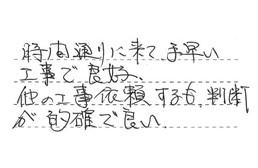 時間通りに来て、手早い
工事で良好、
他の工事依頼するも、判断
が的確で良い、